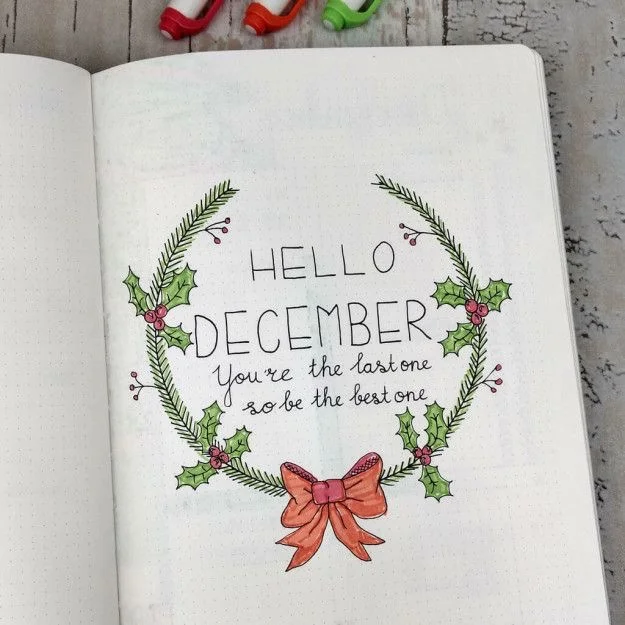 HELLO
DECEMBER
You're the last one
so be the best one